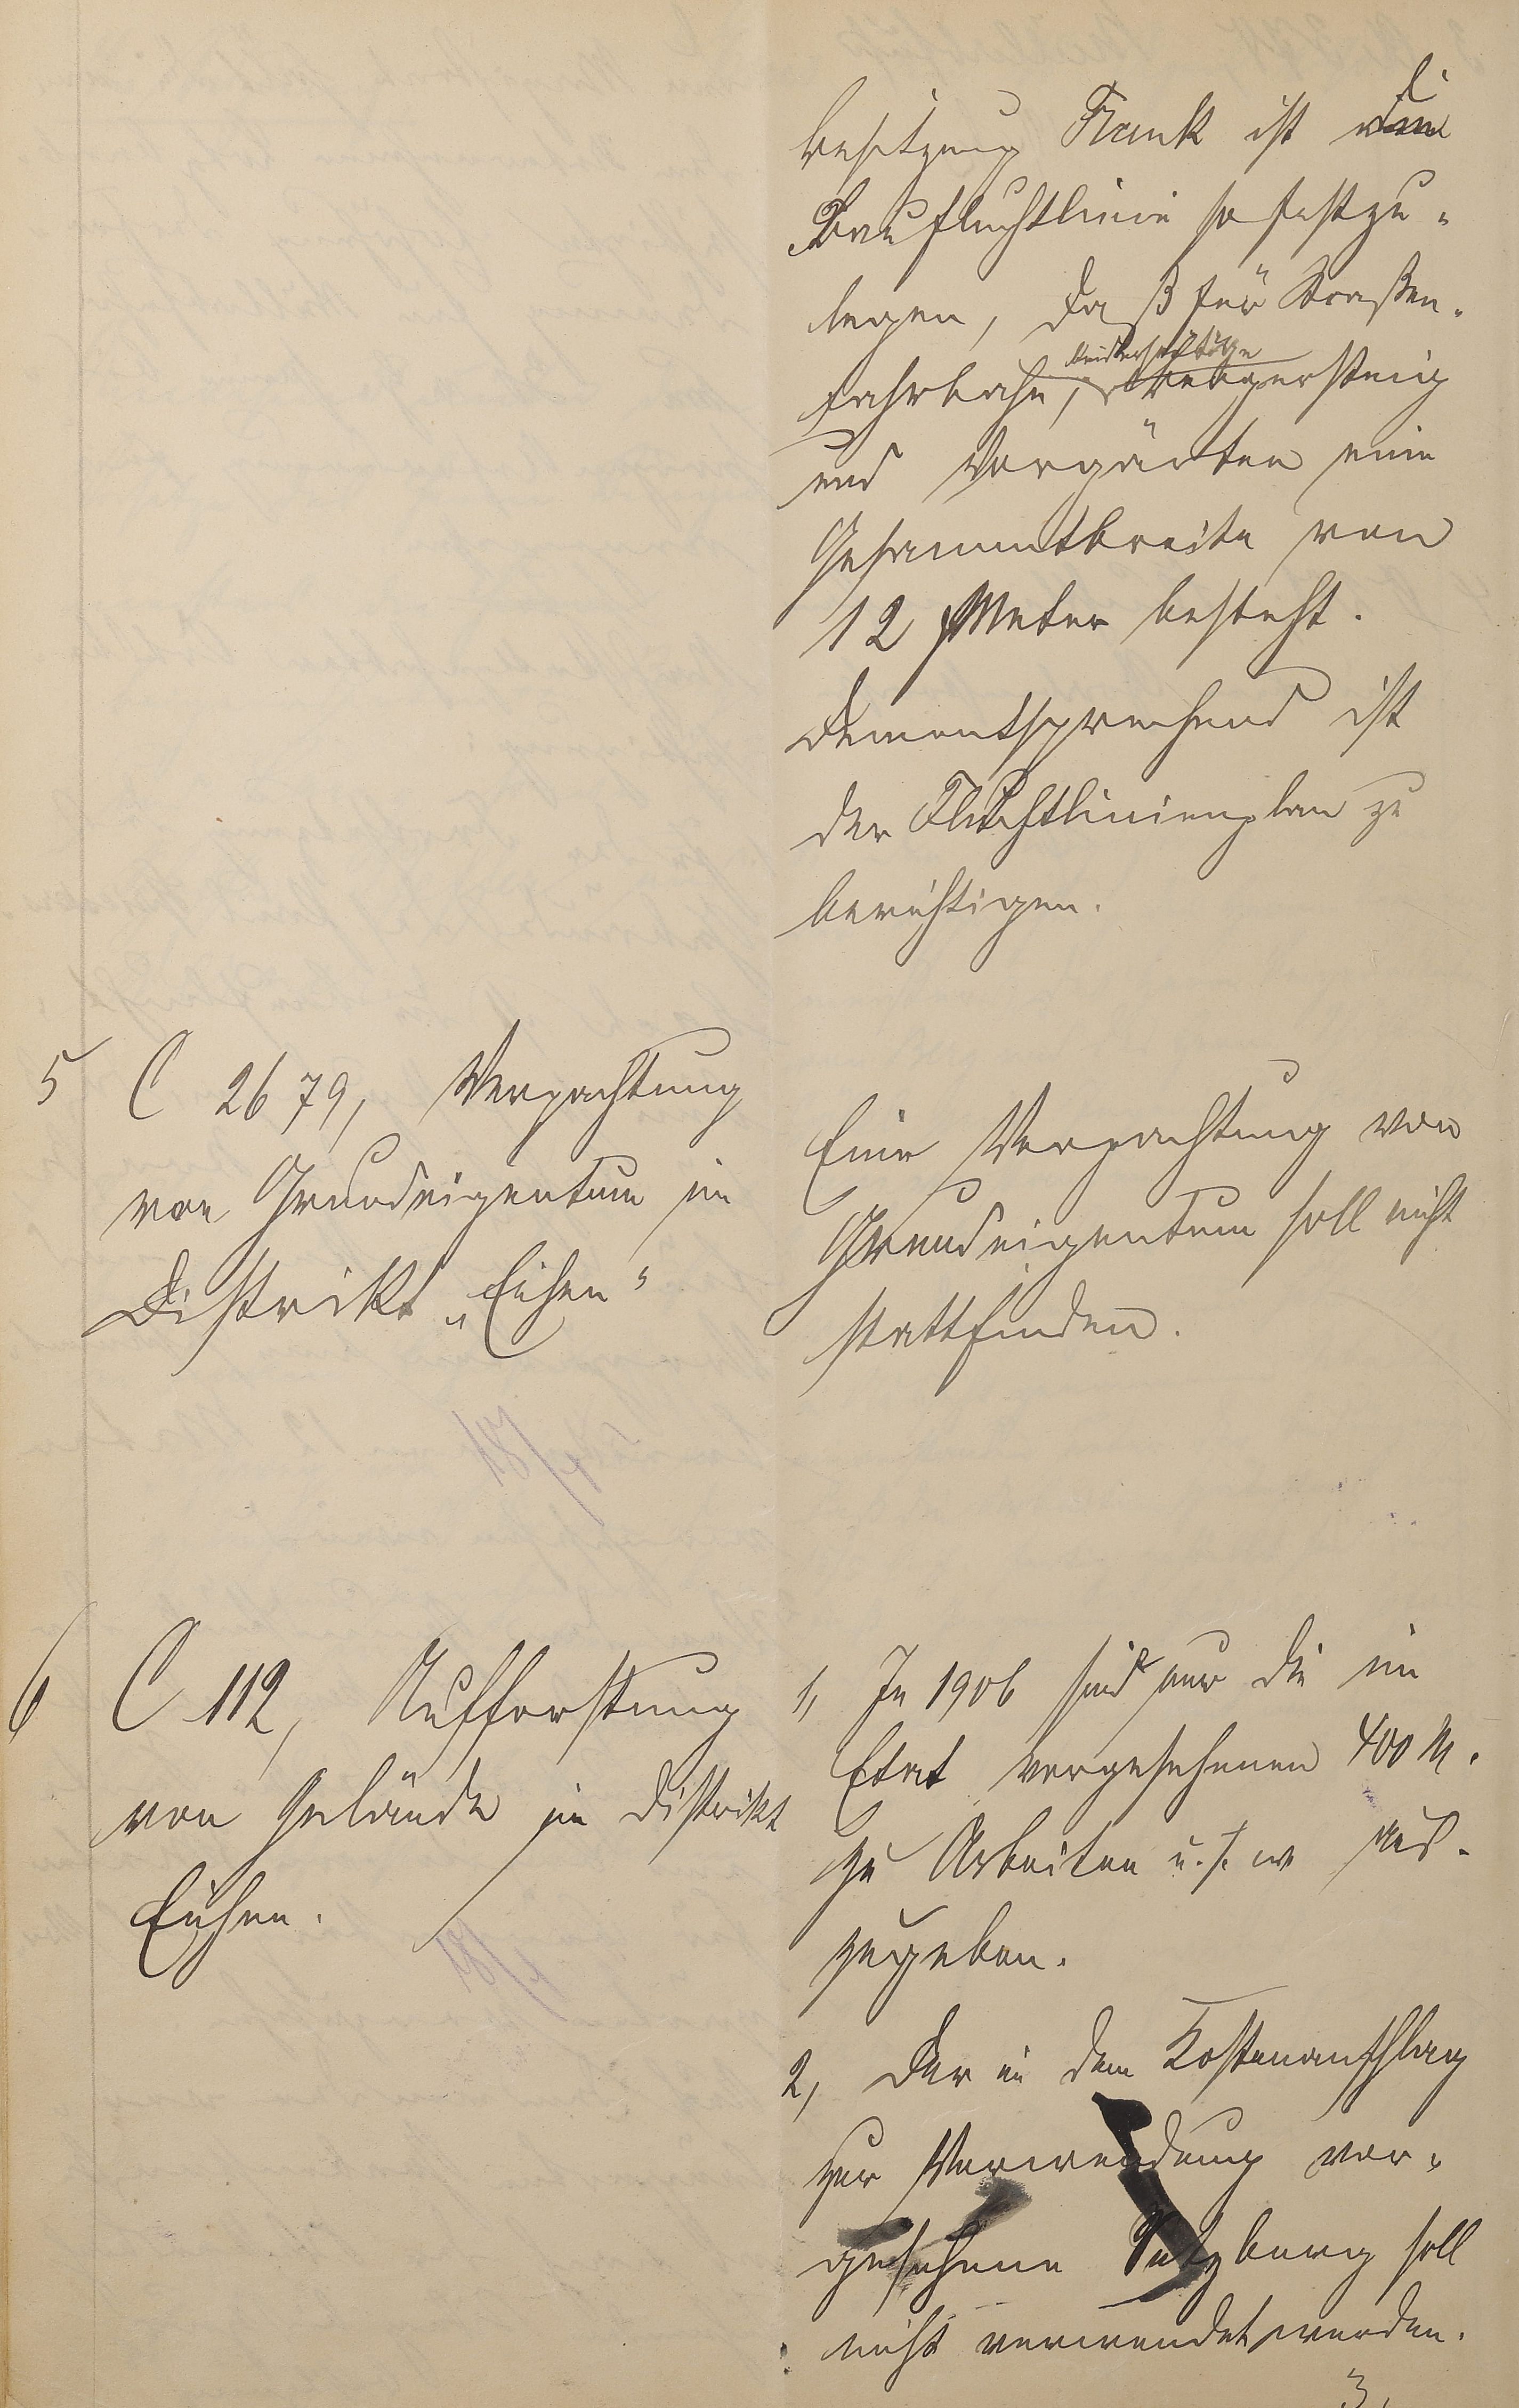 besitzung Frank ist die
Baufluchtlinie so festzu-
legen, daß für Straßen-
fahrbahn, beiderseitige
Bürgersteig
und Vorgärten eine
Gesammtbreite von
12 Meter besteht.
Dementsprechend ist
der Fluchtlinienplan zu
berichtigen.
5 C 2679, Verpachtung
von Grundeigentum im
Distrikt „Eichen"
Eine Verpachtung von
Grundeigentum soll nicht
stattfinden.
6 C 112, Aufforstung
von Gelände im Distrikt
Eichen.
1, In 1906 sind nur die im
Etat vorgesehenen 400 M.
zu Arbeiten u.s.w aus-
zugeben.
2, Der in dem Kostenanschlag
zur Verwendung vor-
gesehene soll
nicht verwendet werden.
3,